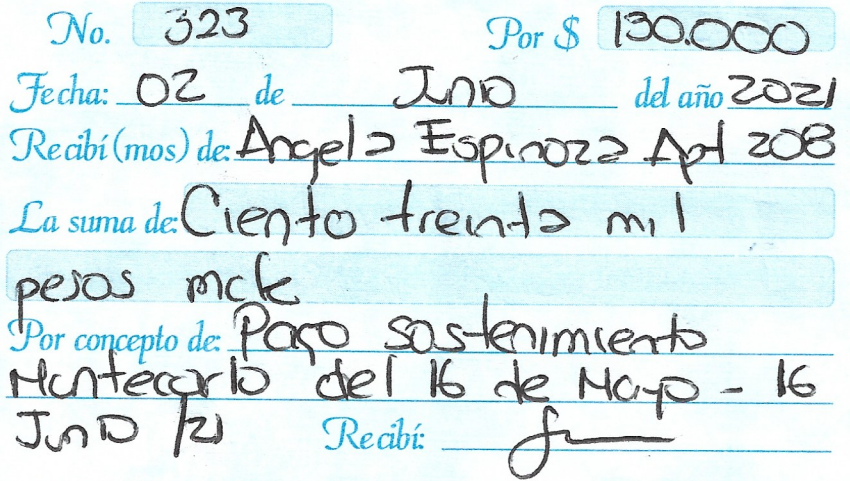 No. 323 Por $ 130.000
Fecha: 02 de Junio del año 2021
Recibí (mos) de: Angela Espinoza Apt 208
La suma de: Ciento treinta mil
pesos mcte
Por concepto de: Pago sostenimiento
Montecarlo del 16 de Mayo - 16
Junio /21 Recibí: